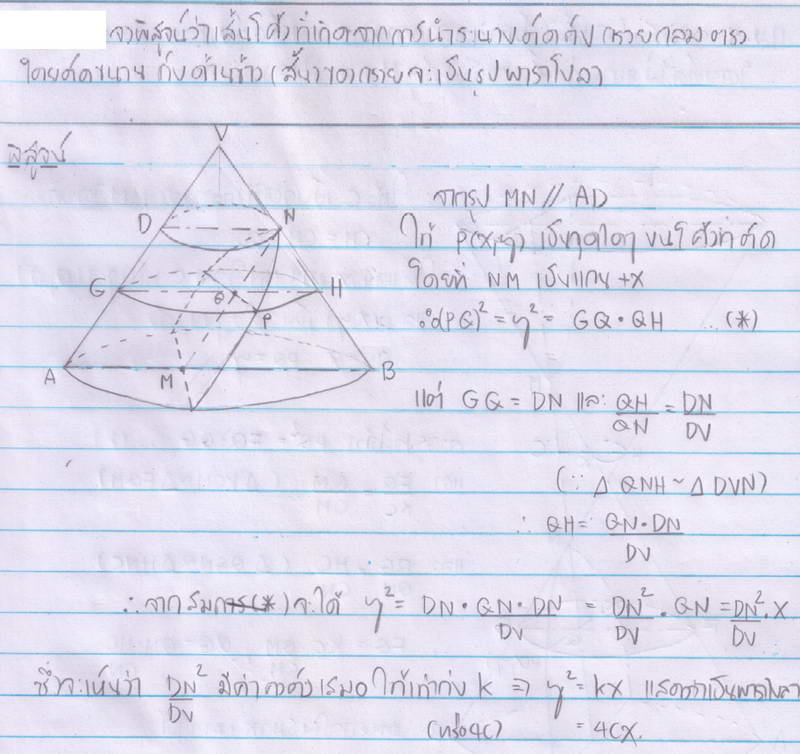 จงพิสูจน์ว่าเส้นโค้งที่เกิดจากการนำระนาบตัดกับกรวยกลมตรง
โดยตัดขนานกับด้านข้างของกรวยจะเป็นรูปพาราโบลา
พิสูจน์
V
D
N
G
H
Q
P
A
M
B
จากรูป MN // AD
ให้ P(x,y) เป็นจุดใดๆ บนโค้งที่ตัด
โดยที่ NM เป็นแกน +X
∴ (PQ)² = y² = GQ·QH ...(*)
แต่ GQ = DN และ QH/QN = DN/DV
(∵ Δ QNH ~ Δ DVN)
∴ QH = QN·DN/DV
∴ จากสมการ(*) จะได้ y² = DN·QN·DN/DV = DN²/DV·QN = DN²/DV·x
ซึ่งจะเห็นว่า DN²/DV มีค่าคงตัวเสมอ ให้เท่ากับ k ⇒ y² = kx แสดงว่าเป็นพาราโบลา
(หรือ 4c) = 4cx.